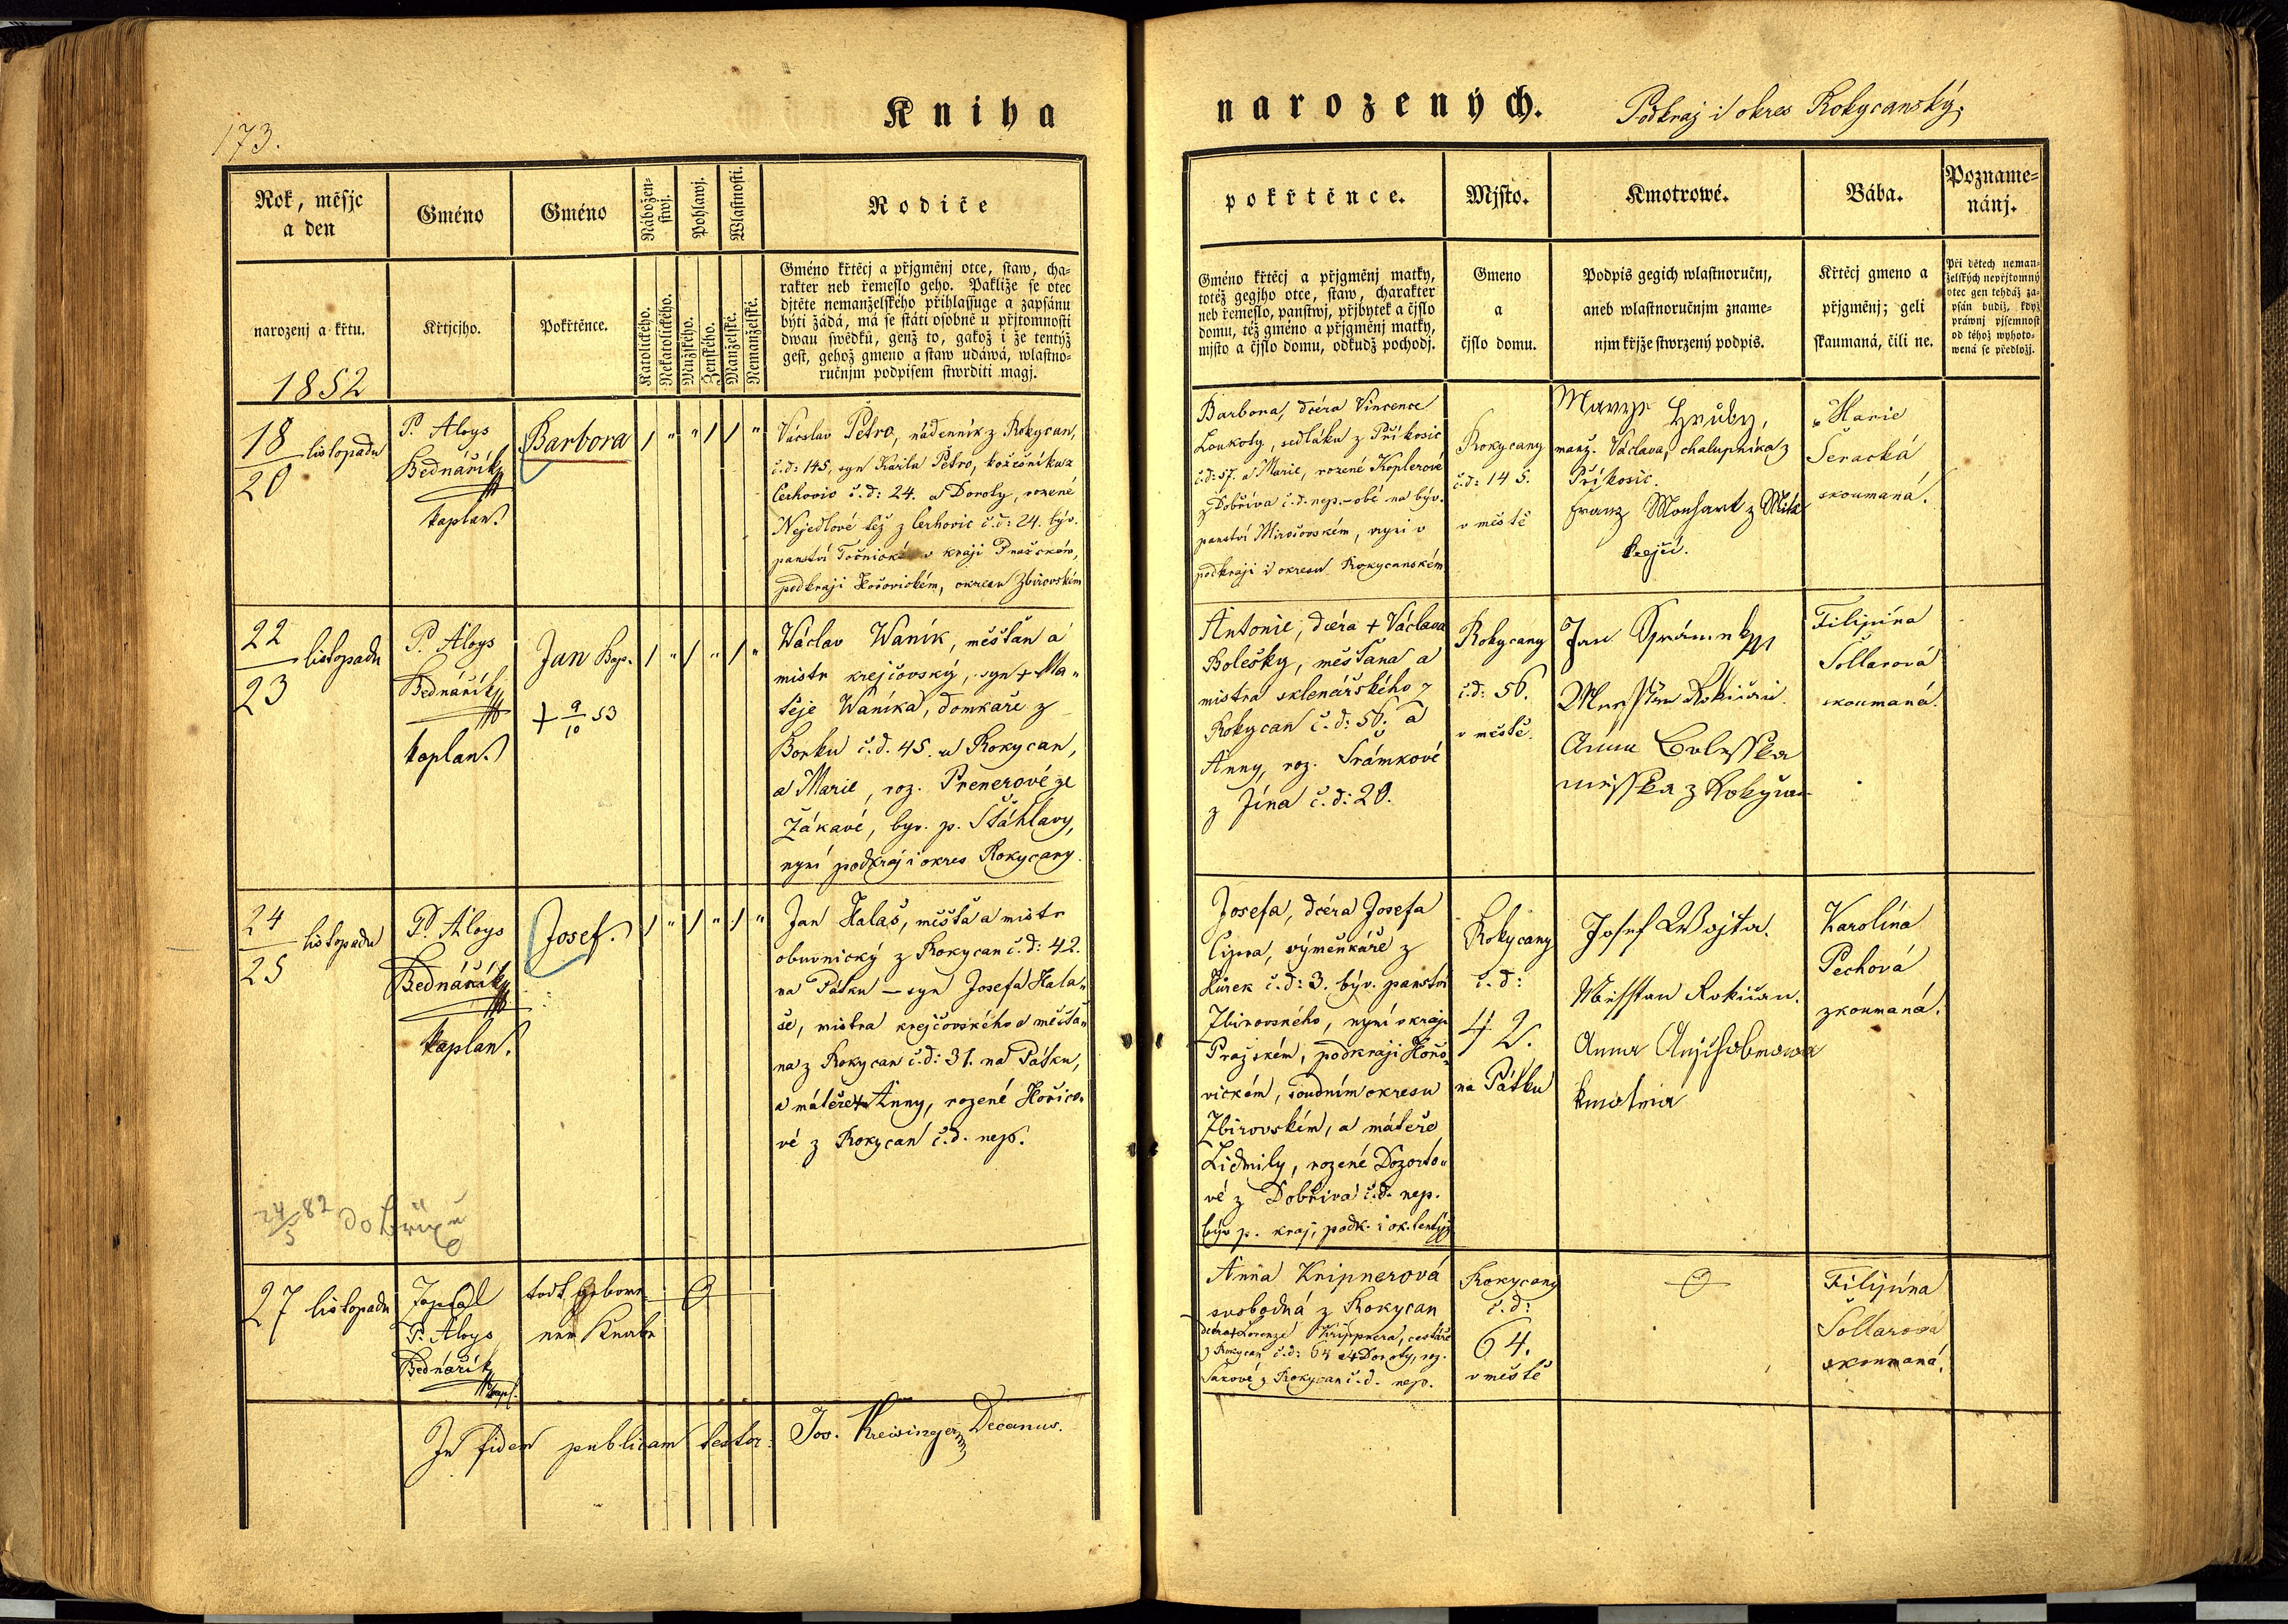 173.
Kniha
narozených.
Podkraj i okres Rokycanský.
Rok, měsjc
a den
narozenj a křtu.
1852
Gméno
Křtjcjho.
Gméno
Pokřtěnce.
Nábožen-
stwj.
Katolického.
Nekatolického.
Pohlawj.
Mužského.
Ženského.
Wlastnosti.
Manželské.
Nemanželské.
Rodiče
Gméno křtěcj a přjgměnj otce, staw, cha-
rakter neb řemeslo geho. Pakliže se otec
djtěte nemanželského přihlassuge a zapsánu
býti žádá, má se státi osobně u přjtomnosti
dwau swědků, genž to, gakož i že tentýž
gest, gehož gmeno a staw udáwá, wlastno-
ručnjm podpisem stwrditi magj.
pokřtěnce.
Gméno křtěcj a přjgměnj matky,
totéž gegjho otce, staw, charakter
neb řemeslo, panstwj, přjbytek a čjslo
domu, též gméno a přjgměnj matky,
mjsto a čjslo domu, odkudž pochodj.
Mjsto.
Gmeno
a
čjslo domu.
Kmotrowé.
Podpis gegich wlastnoručnj,
aneb wlastnoručnjm zname-
njm křjže stwrzený podpis.
Bába.
Křtěcj gmeno a
přjgměnj; geli
skaumaná, čili ne.
Pozname-
nánj.
Při dětech neman-
želských nepřjtomný
otec gen tehdáž za-
psán budiž, když
práwnj pjsemnost
od téhož wyhoto-
wená se předložj.
18 listopadu
20
P. Aloys
Bednářík
kaplan.
Barbora
Václav Petro, nádenník z Rokycan,
č.d: 145, syn Karla Petro, kožešníka z
Cerhovic č.d: 24. a Doroty, rozené
Nejedlové též z Cerhovic č.d: 24. býv.
panství Točnické v kraji Pražském,
podkraji Hořovickém, okresu Zbirovském
Barbora, dcéra Vincence
Loukoty, sedláka z Příkosic
č.d: 57. a Marie, rozené Koplerové
z Dobříva č.d. nep. – obé na býv.
panství Mirošovském, nyní v
podkraji i okresu Rokycanském
Rokycany
č.d: 145.
v městě
Hruby,
manž. Václava, chalupníka z
Příkosic.
Franz
krejčí.
Marie
Šeracká
skoumaná.
22 listopadu
23
P. Aloys
Bednářík
kaplan.
Jan Bap.
+ 9/10 53
Wáclav Waník, měšťan a
mistr krejčovský, syn + Ma„
těje Waníka, domkáře z
Borku č.d. 45. u Rokycan,
a Marie, roz. Prenerové ze
Žákavé, byv. p. Šťáhlavy,
nyní podkraj i okres Rokycany.
Antonie, dcéra + Václava
Bolešky, měšťana a
mistra sklenářského z
Rokycan č.d: 56. a
Anny, roz. Šrámkové
z Jína č.d: 20.
Rokycany
č.d: 56.
v městě.
Jan
Anna Bolesska
z Rokycan
Filipína
Šollarová
skoumaná.
24 listopadu
25
P. Aloys
Bednářík
kaplan.
Josef.
Jan Halaš, měšťa a mistr
obuvnický z Rokycan č.d: 42.
na Pátku – syn Josefa Hala„
še, mistra krejčovského a měšťa„
na z Rokycan č.d: 31. na Pátku,
a máteře + Anny, rozené Hořico„
vé z Rokycan č.d. nep.
Josefa, dcéra Josefa
Cipra, výměnkáře z
Kůrek č.d: 3. býv. panství
Zbirovského, nyní v kraji
Pražském, podkraji Hořo„
vickém, soudním okresu
Zbirovském, a máteře
Lidmily, rozené Dozorto„
vé z Dobříva č.d. nep.
býv. p. kraj, podk. i ok. tentýž
Rokycany
č.d:
42.
na Pátku
Josef Wojta.
Messtan Rokican.
Anna
kmotra
Karolína
Pechová
zkoumaná.
24/5 82
27 listopadu
P. Aloys
Bednářík
kapl.
todt gebore-
ner Knabe
Anna Knipnerová
svobodná z Rokycan
dcéra + Lorenze Krippnera, cestáře
z Rokycan č.d: 64 a + Doroty, roz.
z Rokycan č.d. nep.
Rokycany
č.d:
64.
v městě
Filipína
Šollarová
skoumaná.
In fidem publicam testor: Jos. Kreisinger Decanus.